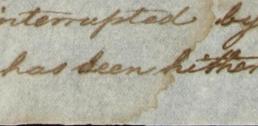 interrupted by
has been hither